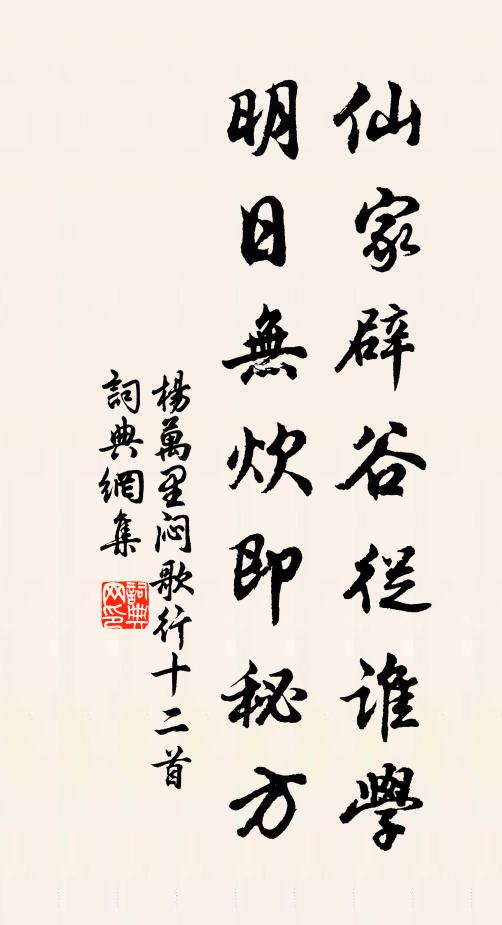 仙家辟谷從誰學
明日無炊即秘方
楊萬里闷歌行十二首
詞典網集
詞典网印